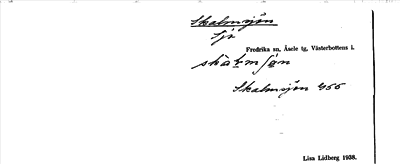 Skalmsjön
Sjö
Fredrika sn, Åsele tg, Västerbottens l.
Skalmsjön
Lisa Lidberg 1938.